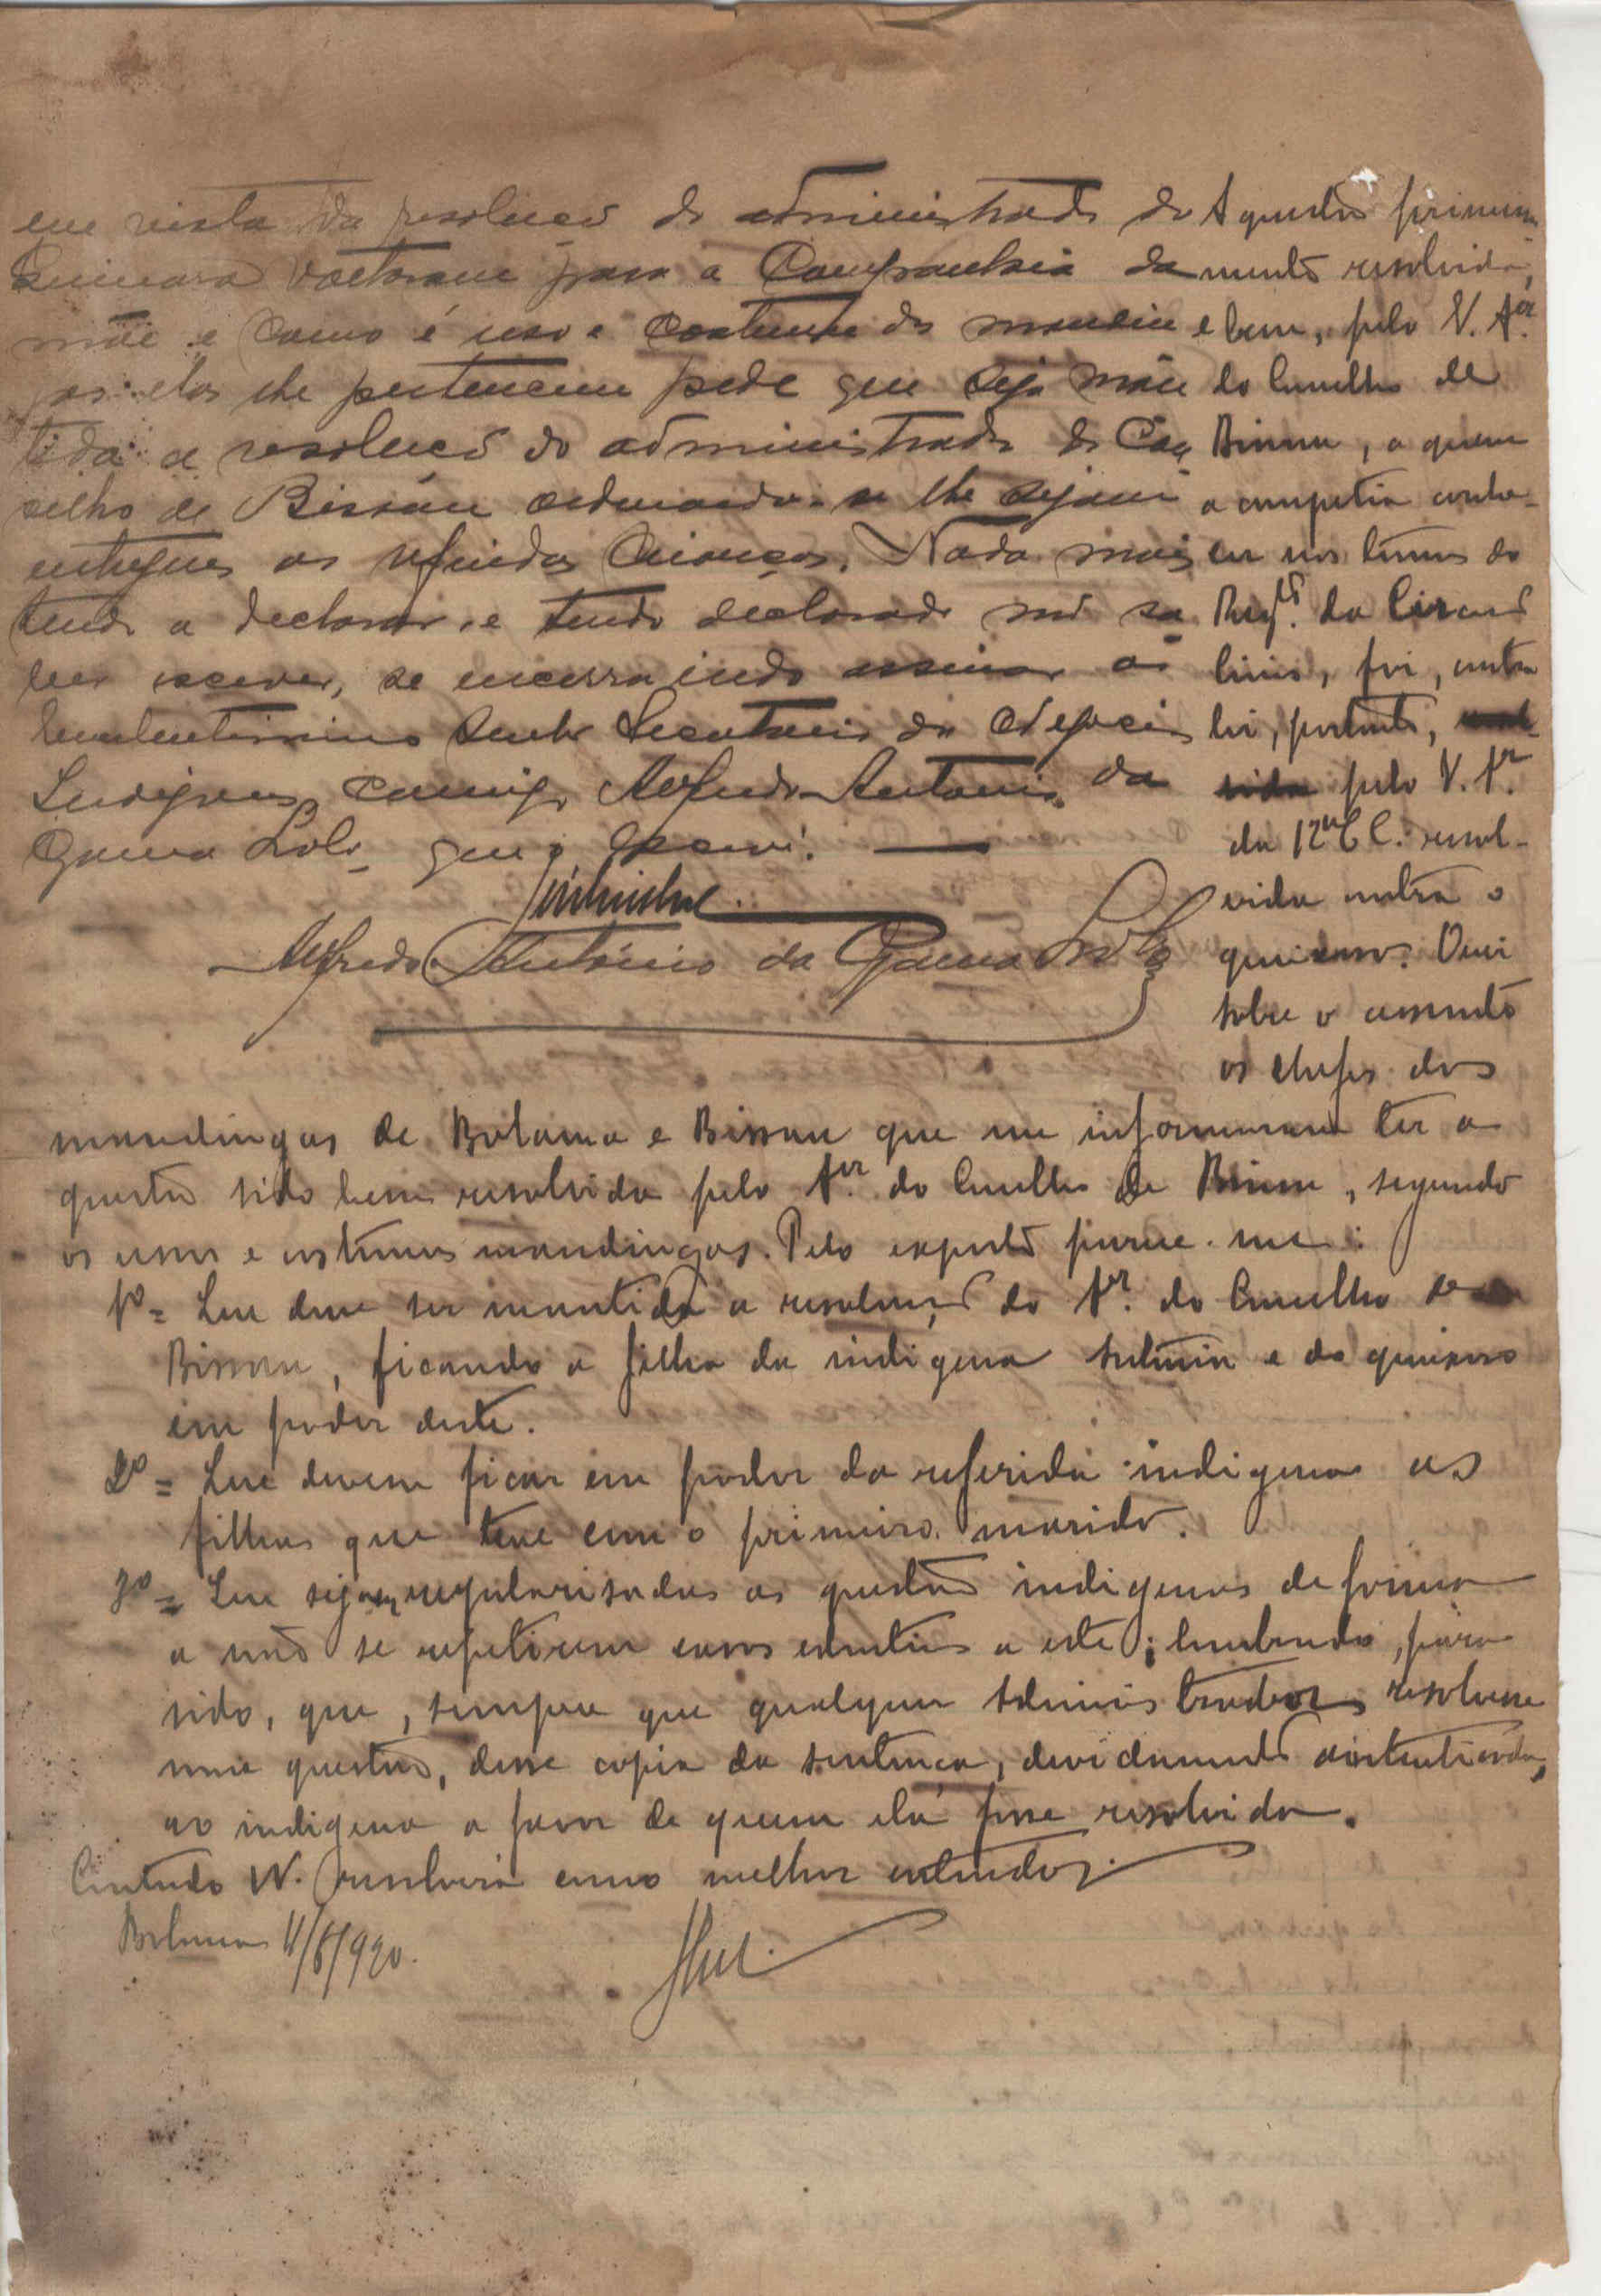 em vista da resolução do administrador de
Quinara voltaram para a Companhia da
mãe e como é uso e costume dos mandin
gas elas lhe pertencem pede que seja man
tida a resolução do administrador do Con
selho de Bissau ordenando-se lhe sejam
entregues as referidas crianças. Nada mais
tendo a declarar, e tendo declarado não sa
ber escrever, se encerra indo assinar o
Excelentissimo Senhor Secretario dos Negocios
Indigenas comigo Alfredo Antonio da
Gama Lobo que o escrevi.
Alfredo António da Gama Lobo
A questão primeira
mente resolvida,
e bem, pelo V. Aor.
do Concelho de
Bissau, a quem
a competia conhe-
cer nos termos do
Regto. da Circuns
crição, foi, contra
lei, portanto,
pelo V. Ar.
da 12a C. C. resol-
vida contra o
queixoso. Ouvi
sobre o assunto
os chefes dos
mandingas de Bolama e Bissau que me informaram ter a
questão sido bem resolvida pelo Aor. do Concelho de Bissau, segundo
os usos e costumes mandingas. Pelo exposto parece-me:
1º = Que deve ser mantida a resolução do Aor. do Concelho de
Bissau, ficando a filha da indigena e do queixoso
em poder deste.
2º = Que devem ficar em poder da referida indigena as
filhas que teve com o primeiro marido.
3º = Que sejam regularisadas as questões indigenas de forma
a não se repetirem casos identicos a este; lembrando, para
isso, que, sempre que qualquer administrador resolvesse
uma questão, desse copia da sentença, devidamente autenticada,
ao indigena a favor de quem ela fosse resolvida.
Contudo V. resolverá como melhor entender.
Bolama 11/6/920.